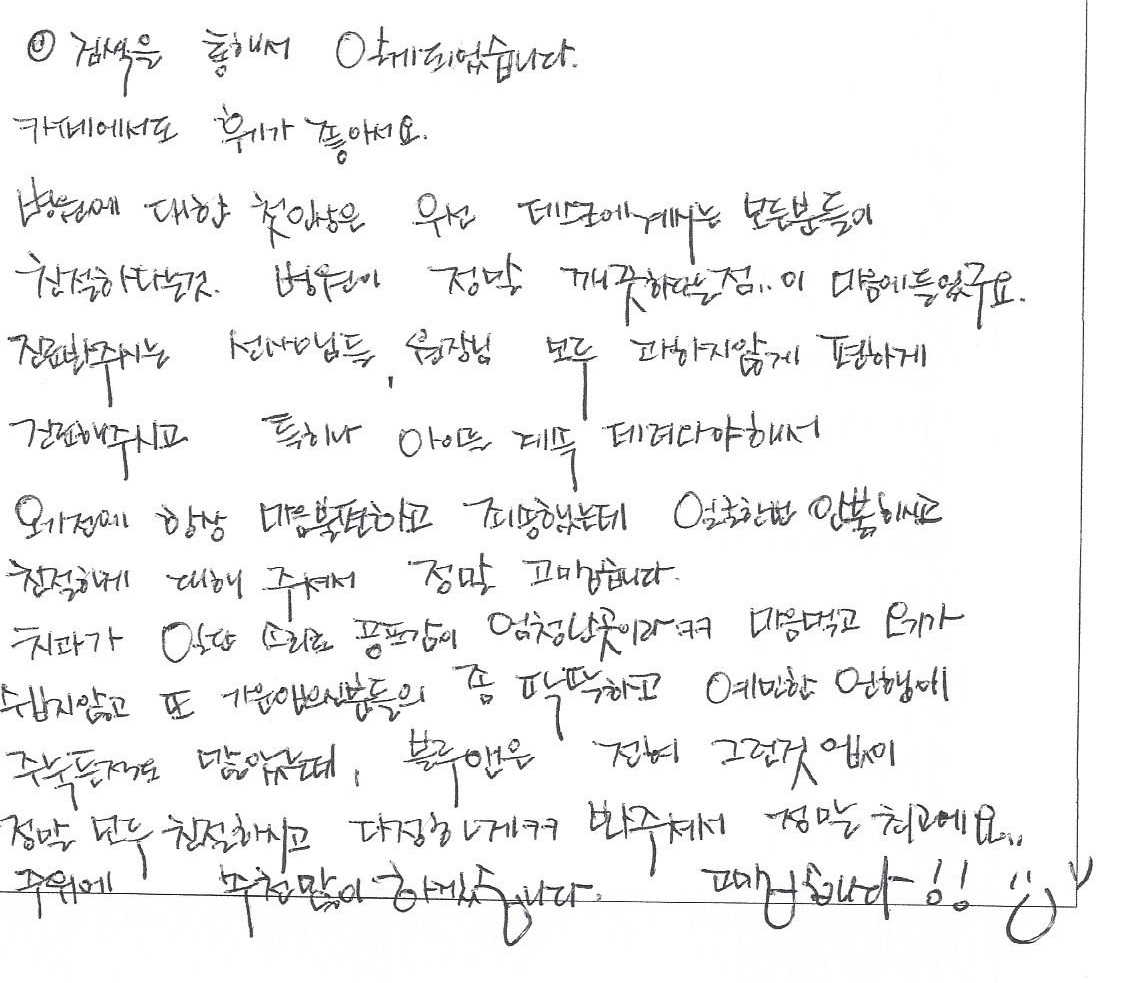 검색을 통해서 알게되었습니다.
카페에서도 후기가 좋아서요.
병원에 대한 첫인상은 우선 데스크에계시는 모든분들이
친절하다는것. 병원이 정말 깨끗하다는점..이 마음에들었구요.
진료봐주시는 선생님들, 원장님 모두 과하지않게 편하게
진료해주시고 특히나 아이들 데려다야해서
오기전에 항상 마음불편하고 죄송했는데 얼굴한번 안붉히시고
친절하게 대해 주셔서 정말 고마웠습니다.
치과가 일단 소리로 공포감이 엄청난곳이라ㅋㅋ 마음먹고 오기가
쉽지않고 또 가운입으신분들의 좀 딱딱하고 예민한 언행에
주눅든적도 많았는데, 블루앤은 전혀 그런것 없이
정말 모두 친절하시고 다정하게ㅋㅋ 봐주셔서 정말 최고에요..
주위에 추천많이 하겠습니다. 고맙습니다!! :)